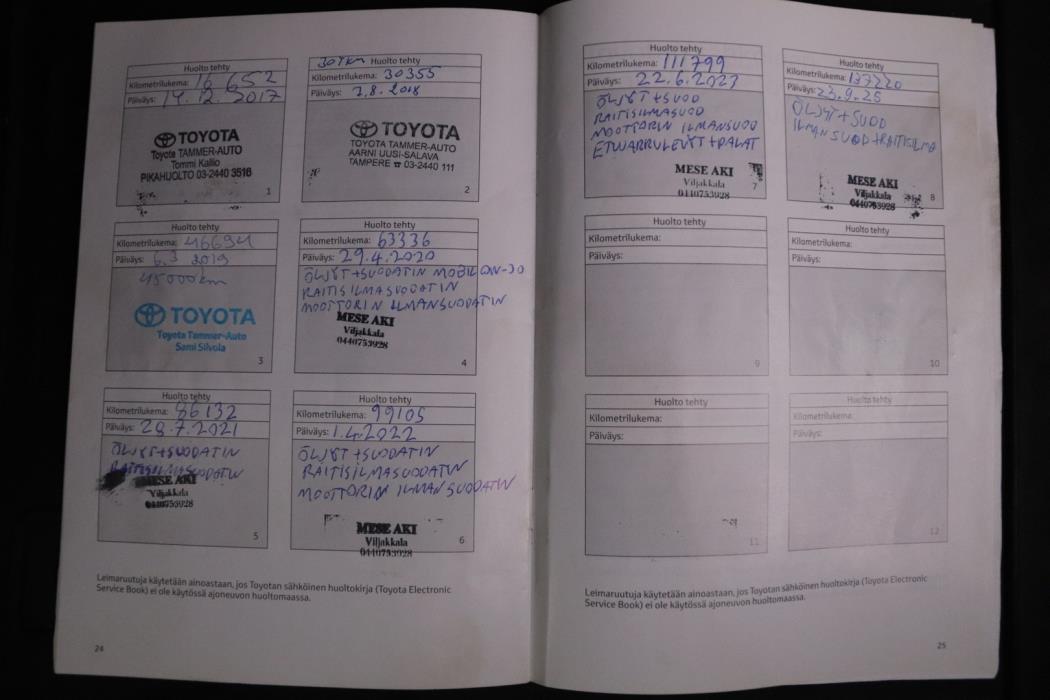 Huolto tehty
Kilometrilukema: 16 652
Päiväys: 14.12.2017
TOYOTA
Toyota TAMMER-AUTO
Tommi Kallio
PIKAHUOLTO 03-2440 3516
1
30 Tkm Huolto tehty
Kilometrilukema: 30355
Päiväys: 2.8.2018
TOYOTA
TOYOTA TAMMER-AUTO
AARNI UUSI-SALAVA
TAMPERE ☎ 03-2440 111
2
Huolto tehty
Kilometrilukema: 46694
Päiväys: 6.3 2019
45000km
TOYOTA
Toyota Tammer-Auto
Sami Silvola
3
Huolto tehty
Kilometrilukema: 63336
Päiväys: 29.4.2020
ÖLJYT+SUODATIN MOBIL 0W-30
RAITISILMASUODATIN
MOOTTORIN ILMANSUODATIN
MESE AKI
Viljakkala
0440753928
4
Huolto tehty
Kilometrilukema: 86132
Päiväys: 28.7.2021
ÖLJYT+SUODATIN
RAITISILMASUODATIN
MESE AKI
Viljakkala
0440753928
5
Huolto tehty
Kilometrilukema: 99105
Päiväys: 1.4.2022
ÖLJYT +SUODATIN
RAITISILMASUODATIN
MOOTTORIN ILMANSUODATIN
MESE AKI
Viljakkala
0440753928
6
Leimaruutuja käytetään ainoastaan, jos Toyotan sähköinen huoltokirja (Toyota Electronic
Service Book) ei ole käytössä ajoneuvon huoltomaassa.
24
Huolto tehty
Kilometrilukema: 111799
Päiväys: 22.6.2023
ÖLJYT +SUOD
RAITISILMASUOD
MOOTTORIN ILMANSUOD
ETUJARRULEVYT +PALAT
MESE AKI
Viljakkala
0440753928
7
Huolto tehty
Kilometrilukema: 137220
Päiväys: 23.9.25
ÖLJYT +SUOD
ILMANSUOD+RAITISILMA
MESE AKI
Viljakkala
0440753928
8
Huolto tehty
Kilometrilukema:
Päiväys:
9
Huolto tehty
Kilometrilukema:
Päiväys:
10
Huolto tehty
Kilometrilukema:
Päiväys:
11
Huolto tehty
Kilometrilukema:
Päiväys:
12
Leimaruutuja käytetään ainoastaan, jos Toyotan sähköinen huoltokirja (Toyota Electronic
Service Book) ei ole käytössä ajoneuvon huoltomaassa.
25